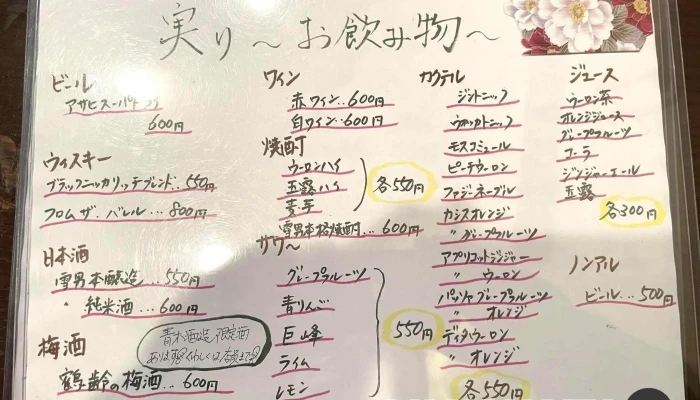 実り～お飲み物～
ビール
アサヒスーパードライ
600円
ウィスキー
ブラックニッカリッチブレンド‥550円
フロム ザ・バレル…800円
日本酒
雪男本醸造…550円
〃 純米酒…600円
青木酒造 限定酒
梅酒
鶴齢の梅酒…600円
ワイン
赤ワイン‥600円
白ワイン‥600円
焼酎
ウーロンハイ
玉露ハイ
麦・芋
各550円
雪男本格焼酎…600円
サワー
グレープフルーツ
青りんご
巨峰
ライム
レモン
550円
カクテル
ジントニック
ウォッカトニック
モスコミュール
ピーチウーロン
ファジーネーブル
カシスオレンジ
〃 グレープフルーツ
アプリコットジンジャー
〃 ウーロン
パッソァグレープフルーツ
〃 オレンジ
ディタウーロン
〃 オレンジ
各550円
ジュース
ウーロン茶
オレンジジュース
グレープフルーツ
コーラ
ジンジャーエール
玉露
各300円
ノンアル
ビール…500円